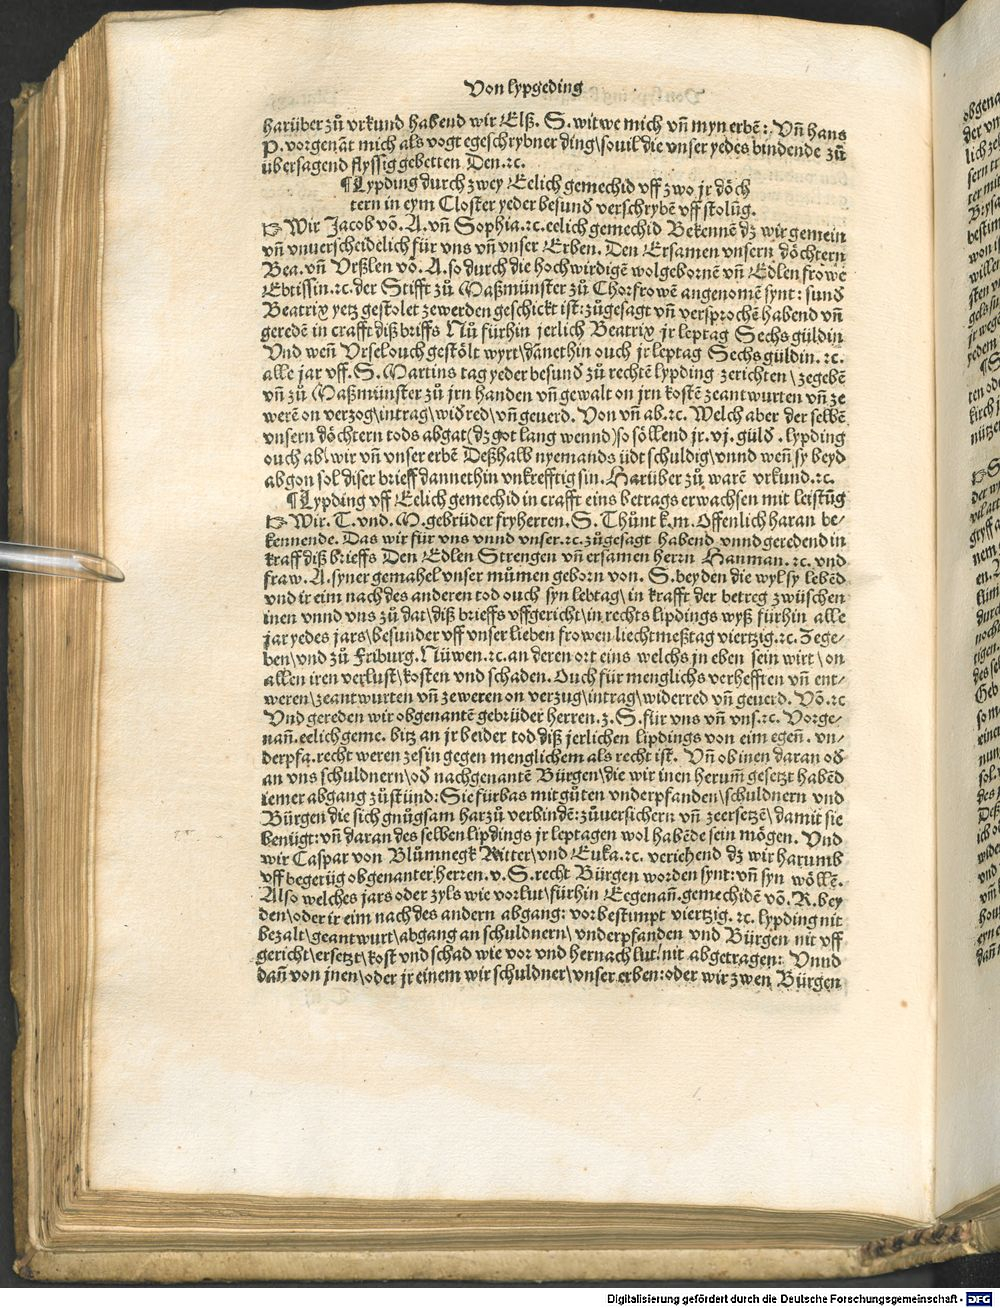 Von lypgeding
harüber zů vrkund habend wir Elß. S. witwe mich vñ myn erbē: Vñ hans
P. vorgenāt mich als vogt egeschrybner ding\souil die vnser yedes bindende zů
übersagend flyssig gebetten Den.ꝛc.
¶Lypding durch zwey Eelich gemechid vff zwo jr döch
tern in eym Closter yeder besund verschrybē vff stolūg.
☞Wir Jacob võ. A. vñ Sophia.ꝛc. eelich gemechid Bekennē dz wir gemein
vñ vnuerscheidelich für vns vñ vnser Erben. Den Ersamen vnsern döchtern
Bea. vñ Vrßlen võ. A. so durch die hochwirdigē wolgebornē vñ Edlen frowē
Ebtissin.ꝛc. der Stifft zů Maßmünster zů Chorfrowē angenomē synt: sund
Beatrix yetz gestolet zewerden geschickt ist: zůgesagt vñ versprochē habend vñ
geredē in crafft diß briffs Nů fürhin jerlich Beatrix jr leptag Sechs güldin
Vnd weñ Vrsel ouch gestölt wyrt\dānethin ouch jr leptag Sechs güldin. ꝛc.
alle jar vff. S. Martins tag yeder besund zů rechtē lypding zerichten\zegebē
vñ zů Maßmünster zů jrn handen vñ gewalt on jrn kostē zeantwurten vñ ze
werē on verzog\intrag\widred\vñ geuerd. Von vñ ab.ꝛc. Welch aber der selbē
vnsern döchtern tods abgat(dz got lang wennd)so söllend jr. vj. güld. lypding
ouch ab\wir vñ vnser erbē Deßhalb nyemands üdt schuldig\vnnd weñ sy beyd
abgon sol diser brieff dannethin vnkrefftig sin. Harüber zů warē vrkund.ꝛc.
¶Lypding vff Eelich gemechid in crafft eins betrags erwachsen mit leistūg
☞Wir. T. vnd. M. gebrüder fryherren. S. Thůnt k.m. Offenlich haran be⸗
kennende. Das wir für vns vnnd vnser.ꝛc. zůgesagt habend vnnd geredend in
kraff diß brieffs Den Edlen Strengen vñ ersamen herrn Hanman. ꝛc. vnd
fraw. A. syner gemahel vnser můmen geborn von. S. beyden die wyl sy lebēd
vnd ir eim nach des anderen tod ouch syn lebtag\in krafft der betreg zwüschen
inen vnnd vns zů dat\diß brieffs vffgericht\in rechts lipdings wyß fürhin alle
jar yedes jars\besunder vff vnser lieben frowen liechtmeßtag viertzig.ꝛc. Zege⸗
ben\vnd zů Friburg. Nüwen.ꝛc. an deren ort eins welchs jn eben sein wirt\on
allen iren verlust\kosten vnd schaden. Ouch für menglichs verhefften vñ ent⸗
weren\zeantwurten vñ zeweren on verzug\intrag\widerred vñ geuerd. Võ.ꝛc
Vnd gereden wir obgenantē gebrüder herren. z. S. für vns vñ vns.ꝛc. Vorge⸗
nañ. eelich geme. bitz an jr beider tod diß jerlichen lipdings von eim egeñ. vn⸗
derpfa. recht weren ze sin gegen menglichem als recht ist. Vñ ob inen daran od
an vns schuldnern\od nachgenantē Bürgen\die wir inen herum̄ gesetzt habēd
iemer abgang zůstünd: Sie fürbas mit gůten vnderpfanden\schuldnern vnd
Bürgen die sich gnůgsam harzů verbindē: zůuersichern vñ zeersetzē\damit sie
benügt: vñ daran des selben lipdings jr leptagen wol habēde sein mögen. Vnd
wir Caspar von Blůmnegk Ritter\vnd Euka.ꝛc. veriehend dz wir harumb
vff begerüg obgenanter herren. v. S. recht Bürgen worden synt: vñ syn wöllē.
Also welches jars oder zyls wie vorlut\fürhin Eegenañ. gemechidē võ. R. bey
den\oder ir eim nach des andern abgang: vorbestimpt viertzig. ꝛc. lypding nit
bezalt\geantwurt\abgang an schuldnern\vnderpfanden vnd Bürgen nit vff
gericht\ersetzt\kost vnd schad wie vor vnd hernach lut\nit abgetragen: Vnnd
dañ von jnen\oder jr einem wir schuldner\vnser erben: oder wir zwen Bürgen
Digitalisierung gefördert durch die Deutsche Forschungsgemeinschaft - DFG